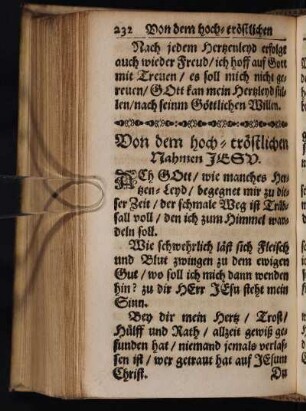 232 Von dem hoch-tröstlichen
Nach jedem Hertzenleyd erfolgt
auch wieder Freud/ ich hoff auf Gott
mit Treuen/ es soll mich nicht ge-
reuen/ GOtt kan mein Hertzleyd stil-
len/ nach seinm Göttlichen Willen.
Von dem hoch-tröstlichen
Nahmen JESU.
ACh GOtt/ wie manches Her-
tzen-Leyd/ begegnet mir zu die-
ser Zeit/ der schmale Weg ist Trüb-
sall voll/ den ich zum Himmel wan-
deln soll.
Wie schwehrlich läst sich Fleisch
und Blut zwingen zu dem ewigen
Gut/ wo soll ich mich dann wenden
hin? zu dir HErr JEsu steht mein
Sinn.
Bey dir mein Hertz/ Trost/
Hülff und Rath/ allzeit gewiß ge-
funden hat/ niemand jemals verlas-
sen ist/ wer getraut hat auf JEsum
Christ. Du